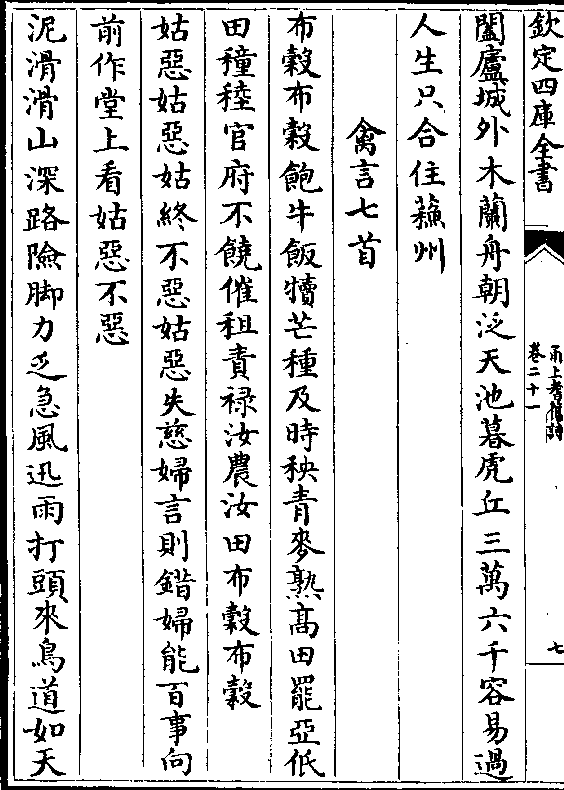 欽定四庫全書
甬上耆舊詩
卷二十一
七
闔廬城外木蘭舟朝泛天池暮虎丘三萬六千容易過
人生只合住蘓州
禽言七首
布穀布穀飽牛飯犢芒種及時秧青麥熟高田罷亞低
田穜稑官府不饒催租責祿汝農汝田布穀布穀
姑惡姑惡姑終不惡姑惡失慈婦言則錯婦能百事向
前作堂上看姑惡不惡
泥滑滑山深路險脚力乏急風迅雨打頭來鳥道如天